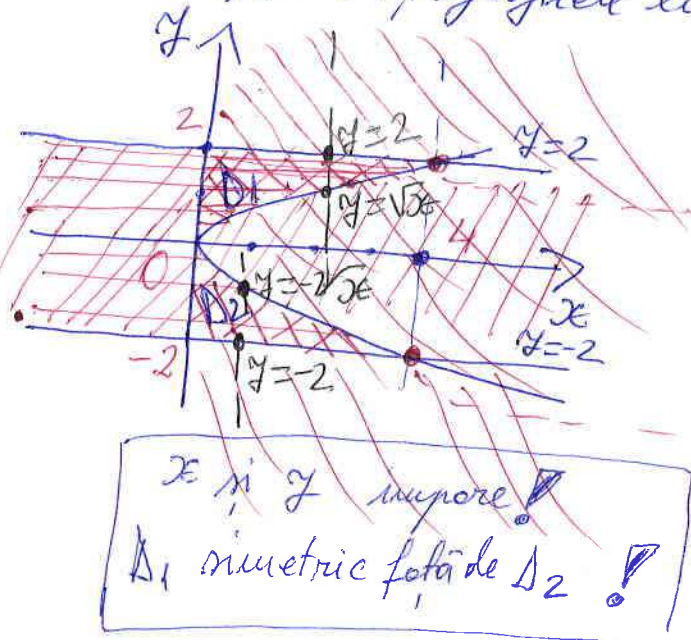 y
2
y=2
y=2
D1
y=√x
4
0
y=-2√x
x
D2
y=-2
-2
y=-2
x și y impare!
D1 simetric față de D2 !